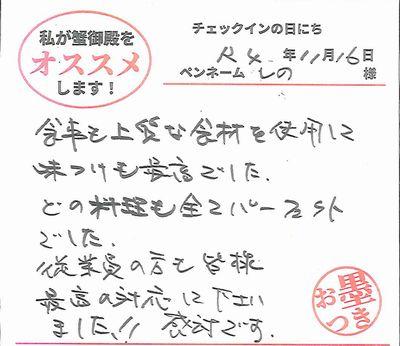 私が蟹御殿を
オススメ
します！
チェックインの日にち
R4. 年11月16日
ペンネーム しの 様
食事も上質な食材を使用して
味つけも最高でした.
どの料理も全てパーフェクト
でした.
従業員の方も皆様
最高の対応して下さい
ました!! 感謝です.
墨
おつき